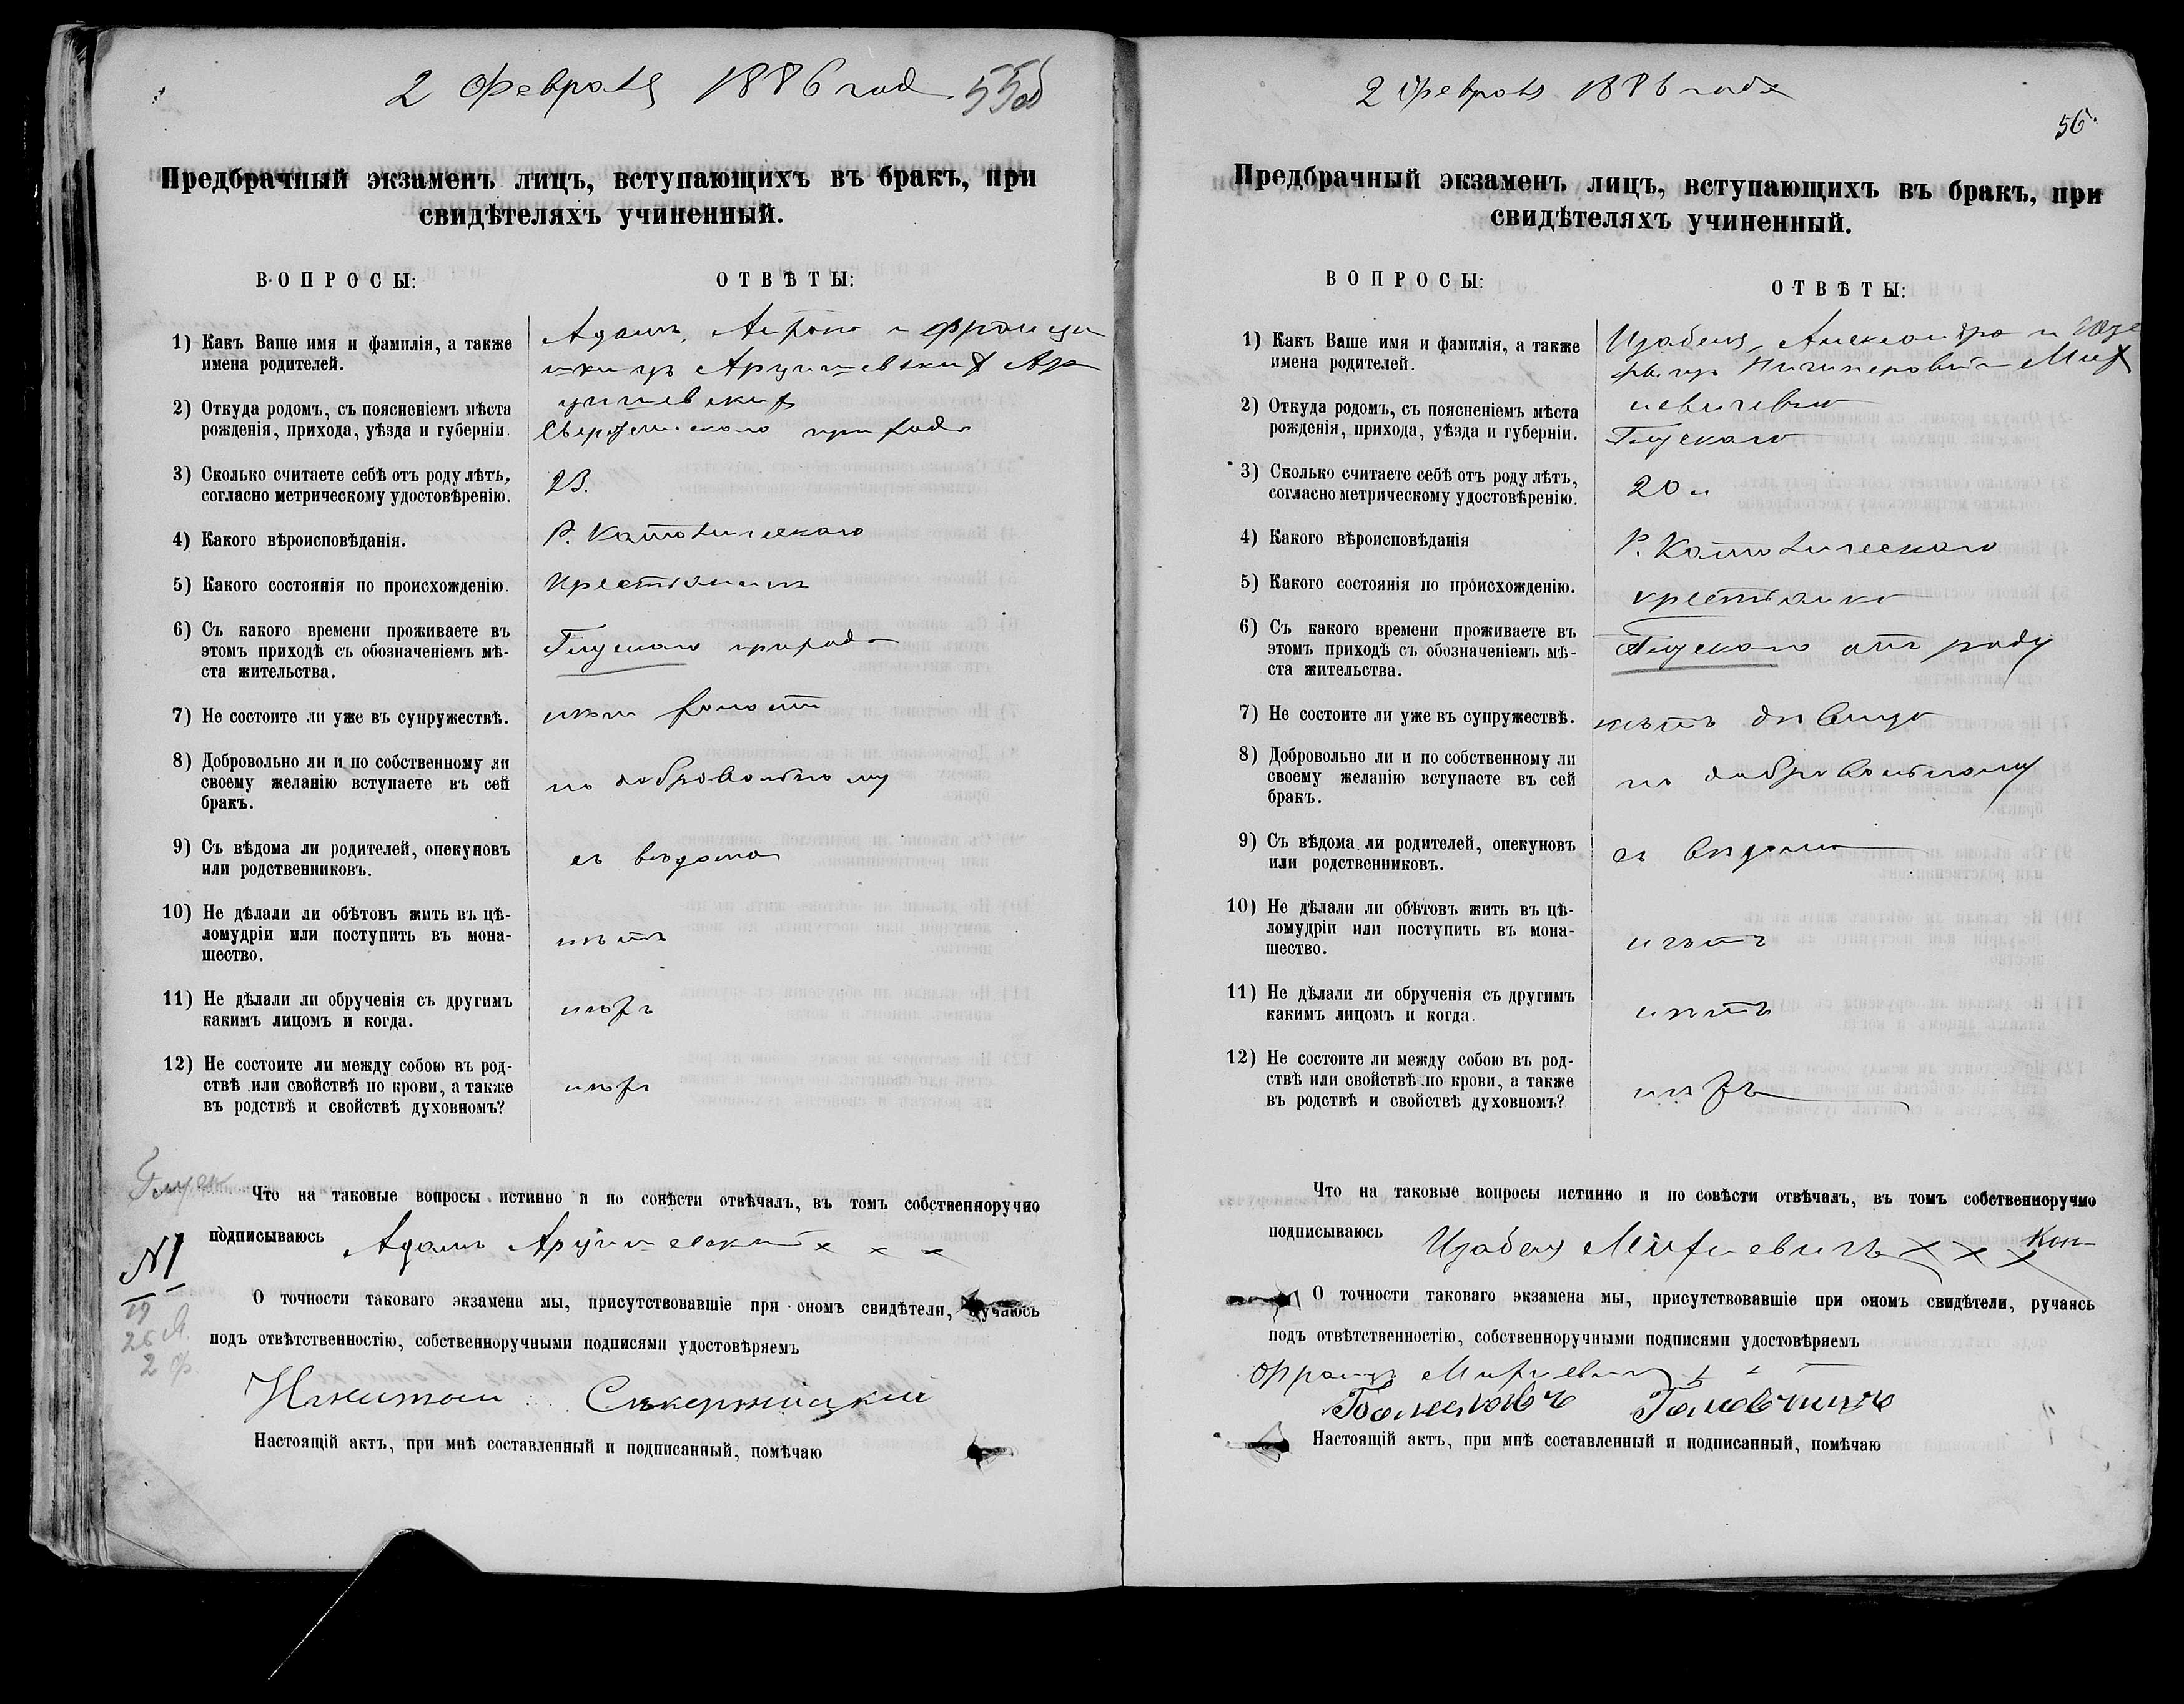 2 Февраля 1886 год 55об
Предбрачный экзаменъ лицъ, вступающихъ въ бракъ, при
свидѣтеляхъ учиненный.
ВОПРОСЫ:
ОТВѢТЫ:
1) Какъ Ваше имя и фамилія, а также
имена родителей.
Адамъ,
2) Откуда родомъ, съ поясненіемъ мѣста
рожденія, прихода, уѣзда и губерніи.
прихода
3) Сколько считаете себѣ отъ роду лѣтъ,
согласно метрическому удостовѣренію.
23.
4) Какого вѣроисповѣданія.
Р. Католическаго
5) Какого состоянія по происхожденію.
Крестьянинъ
6) Съ какого времени проживаете въ
этомъ приходѣ съ обозначеніемъ мѣ-
ста жительства.
Глускаго прихода
7) Не состоите ли уже въ супружествѣ.
8) Добровольно ли и по собственному ли
своему желанію вступаете въ сей
бракъ.
по добровольному
9) Съ вѣдома ли родителей, опекуновъ
или родственниковъ.
съ вѣдома
10) Не дѣлали ли обѣтовъ жить въ цѣ-
ломудріи или поступить въ мона-
шество.
нѣтъ
11) Не дѣлали ли обрученія съ другимъ
какимъ лицомъ и когда.
нѣтъ
12) Не состоите ли между собою въ род-
ствѣ или свойствѣ по крови, а также
въ родствѣ и свойствѣ духовномъ?
нѣтъ
Что на таковые вопросы истинно и по совѣсти отвѣчалъ, въ томъ собственноручно
подписываюсь Адамъ х х х
N 1
19
26 Я.
2 Ф.
О точности таковаго экзамена мы, присутствовавшіе при ономъ свидѣтели, ручаюсь
подъ отвѣтственностію, собственноручными подписями удостовѣряемъ
Настоящій актъ, при мнѣ составленный и подписанный, помѣчаю
2 Февраля 1886 года
56.
Предбрачный экзаменъ лицъ, вступающихъ въ бракъ, при
свидѣтеляхъ учиненный.
ВОПРОСЫ:
ОТВѢТЫ:
1) Какъ Ваше имя и фамилія, а также
имена родителей.
Изабеля, Александра и
2) Откуда родомъ, съ поясненіемъ мѣста
рожденія, прихода, уѣзда и губерніи.
Глускаго
3) Сколько считаете себѣ отъ роду лѣтъ,
согласно метрическому удостовѣренію.
20 л
4) Какого вѣроисповѣданія
Р. Католическаго
5) Какого состоянія по происхожденію.
крестьянка
6) Съ какого времени проживаете въ
этомъ приходѣ съ обозначеніемъ мѣ-
ста жительства.
Глускаго отъ роду
7) Не состоите ли уже въ супружествѣ.
нѣтъ дѣвица
8) Добровольно ли и по собственному ли
своему желанію вступаете въ сей
бракъ.
по добровольному
9) Съ вѣдома ли родителей, опекуновъ
или родственниковъ.
съ вѣдома
10) Не дѣлали ли обѣтовъ жить въ цѣ-
ломудріи или поступить въ мона-
шество.
нѣтъ
11) Не дѣлали ли обрученія съ другимъ
какимъ лицомъ и когда.
нѣтъ
12) Не состоите ли между собою въ род-
ствѣ или свойствѣ по крови, а также
въ родствѣ и свойствѣ духовномъ?
нѣтъ
Что на таковые вопросы истинно и по совѣсти отвѣчалъ, въ томъ собственноручно
подписываюсь Изабеля х х х
О точности таковаго экзамена мы, присутствовавшіе при ономъ свидѣтели, ручаясь
подъ отвѣтственностію, собственноручными подписями удостовѣряемъ
Францъ
Настоящій актъ, при мнѣ составленный и подписанный, помѣчаю